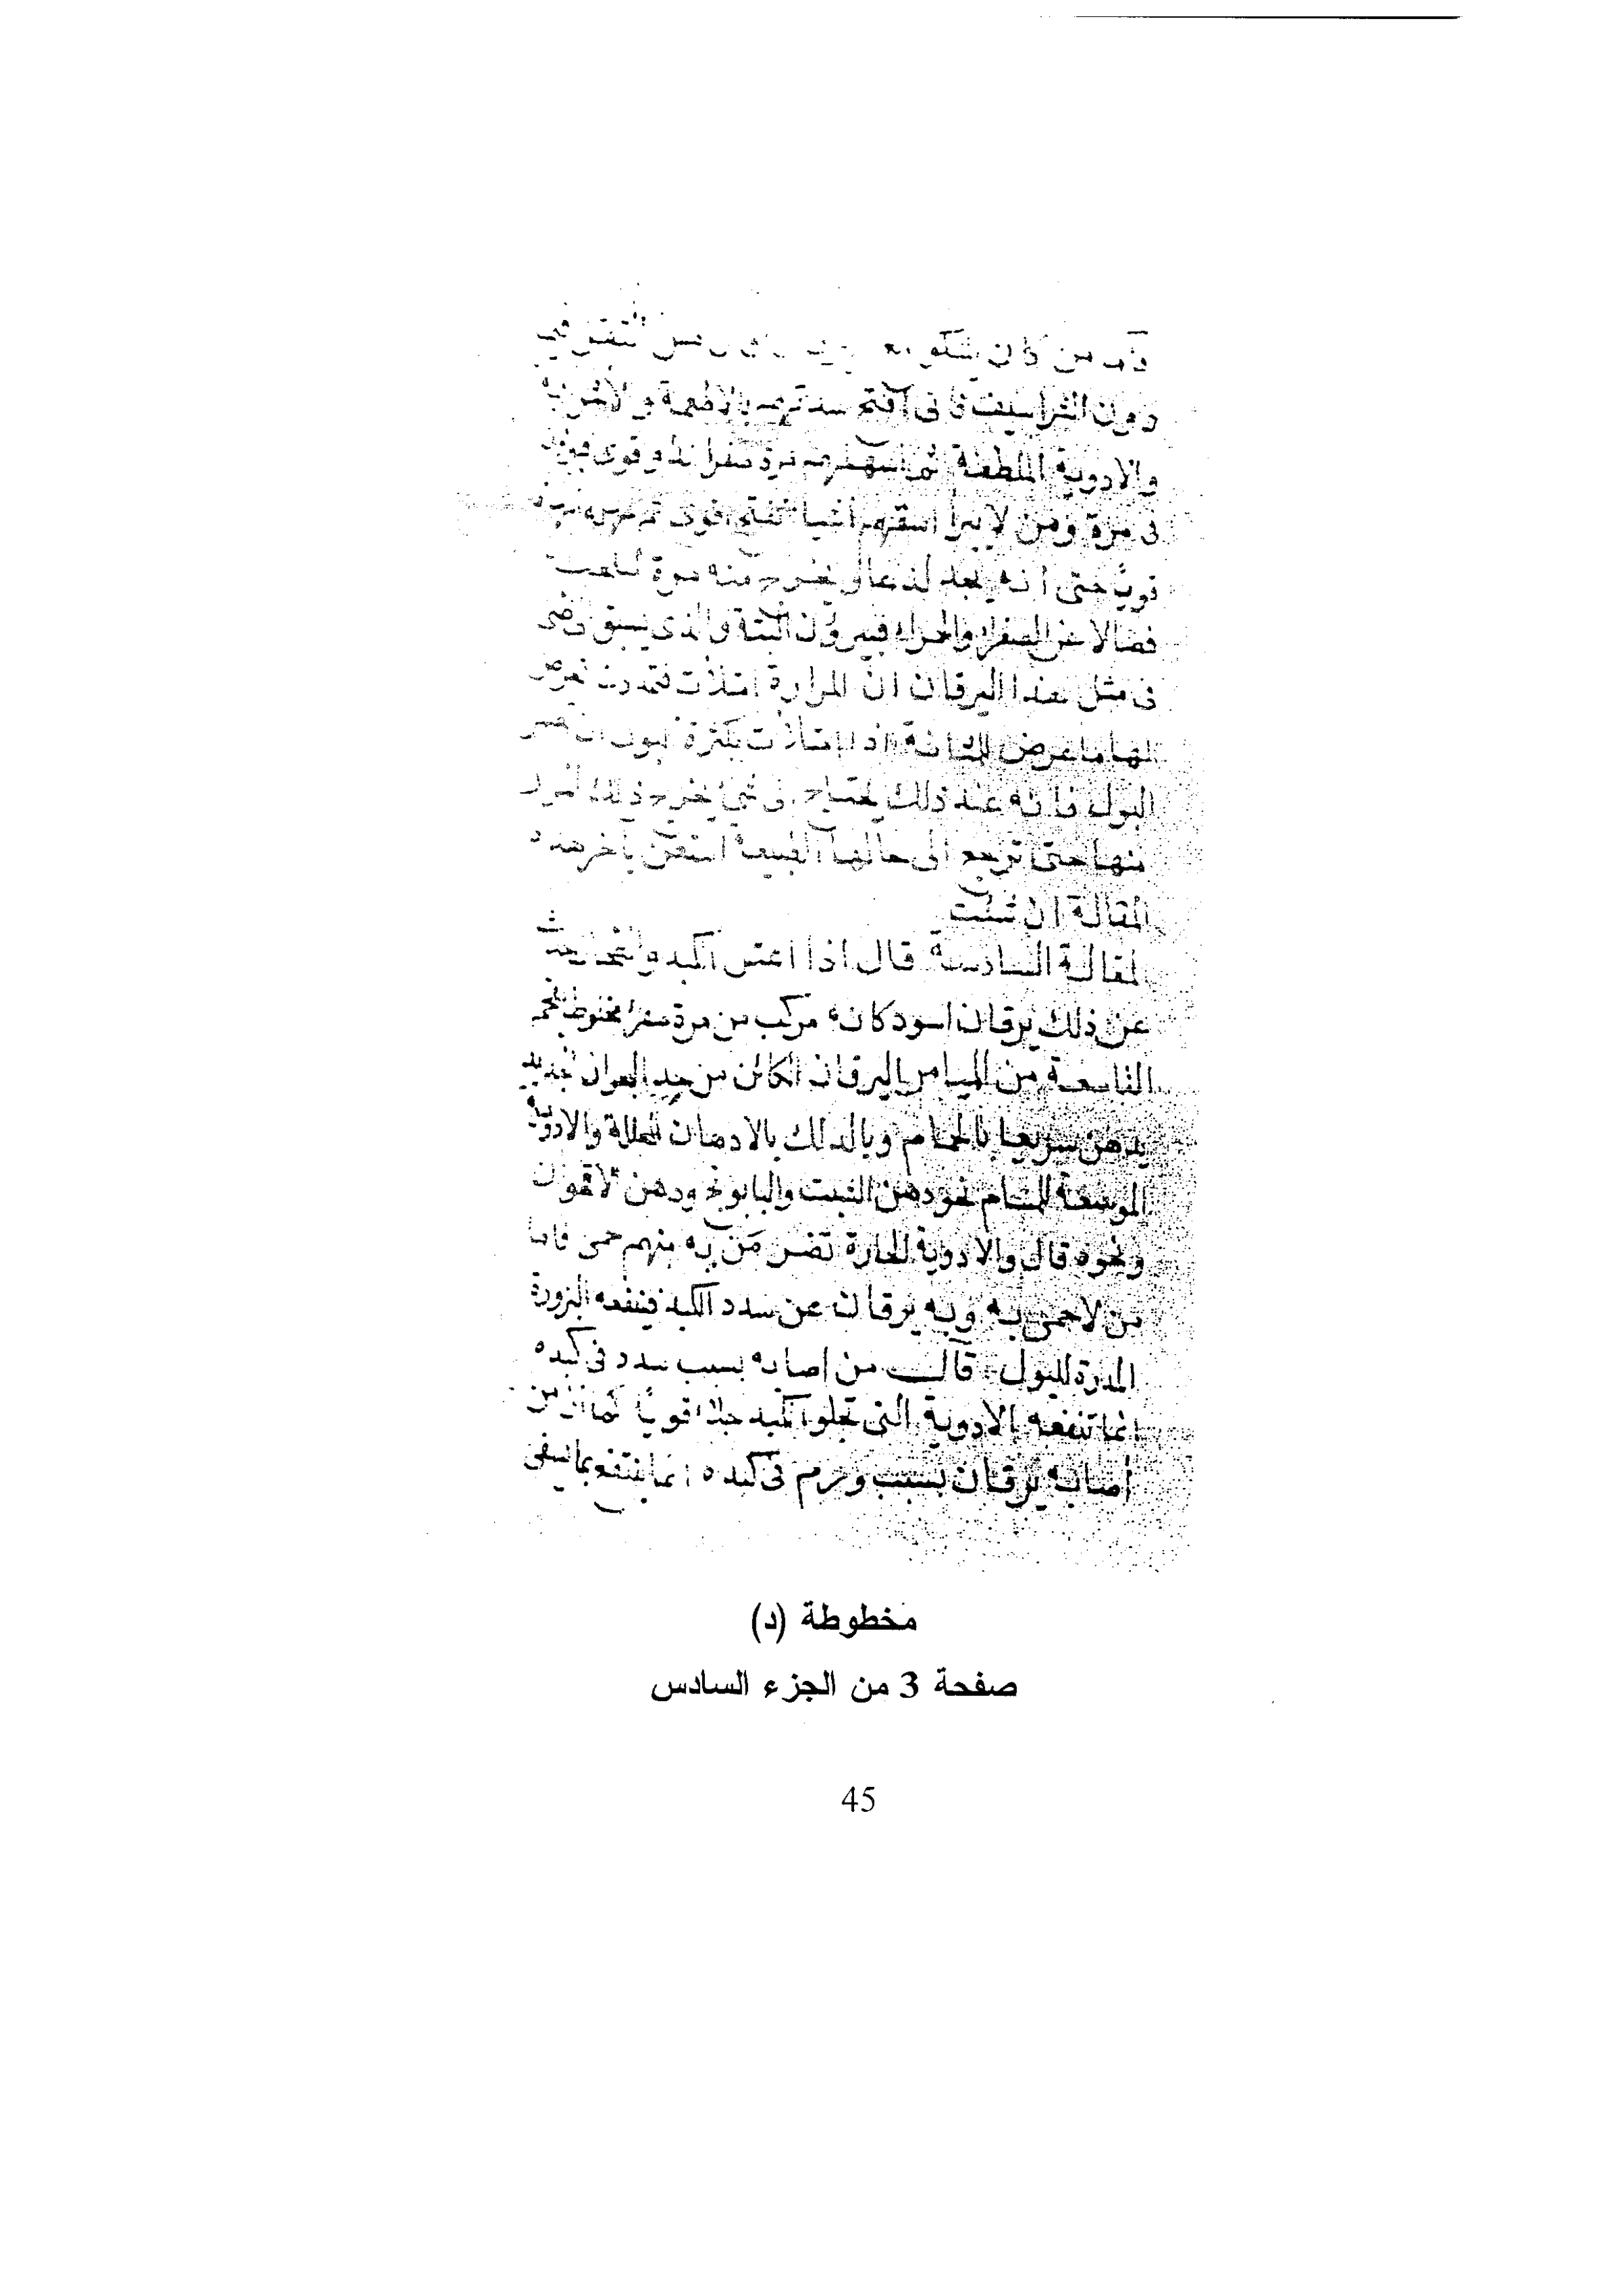 من كان يشكو
دون الشراسيف فانى افتح سددهم بالاطعمة والاشربة
والادوية الملطفة ثم اسهلهم مرة صفرا بدوا قوى
فى مرة ومن لا يبرا اسقهم اشيا تفتح اقوى ثم
قويا حتى انه يجد لذعا ويخرج منه مرة
فضلا عن الصفرا والحرا فيبرؤن البتة والذى يسبق
فى مثل هذا اليرقان ان المرارة امتلات فتمددت فعرض
لها ما عرض للمثانة اذا امتلات بكثرة البول ان
البول فانه عند ذلك يحتاج فى شئ يخرج ذلك المرار
منها حتى ترجع الى حالها الطبيعية استعن بآخر هذه
المقالة ان شئت
المقالة السادسة قال اذا اعتل الكبد والطحال حدث
عن ذلك يرقان اسود كانه مركب من مرة صفرا مخلوط بفحم
التاسعة من الميامر اليرقان الكائن من جيد البحران
يذهب سريعا بالحمام وبالدلك بالادهان المحللة والادوية
الموسعة للمسام نحو دهن الشبت والبابونج ودهن الاقحوان
ونحوه قال والادوية الحارة تضر من به منهم حمى فاما
من لا حمى به وبه يرقان عن سدد الكبد فينفعه البزورة
المدرة للبول قال من اصابه بسبب سدد فى كبده
انما تنفعه الادوية التى تجلو الكبد جلاء قويا كما ان من
اصابه يرقان بسبب ورم فى كبده انما ينتفع بما يشفى
مخطوطة (د)
صفحة 3 من الجزء السادس
45